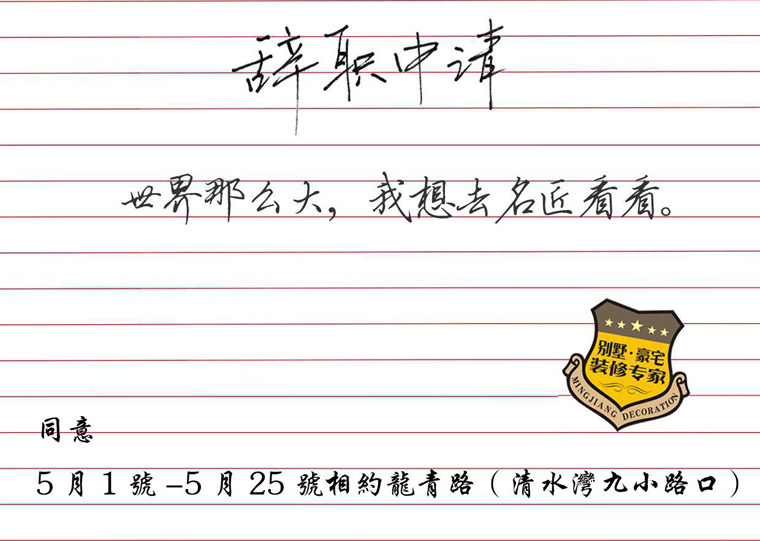 辞职申请
世界那么大，我想去名匠看看。
★★★★★
别墅·豪宅
装修专家
MINGJIANG DECORATION
同意
5月1號–5月25號相約龍青路（清水灣九小路口）